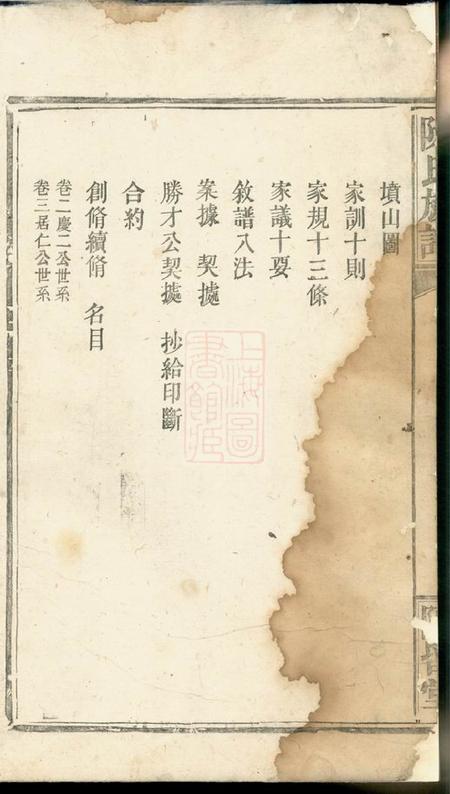 陳氏族譜
墳山圖
家訓十則
家規十三條
家議十要
敘譜入法
案據 契據
勝才公契據 抄給印斷
合約
創脩續脩 名目
卷二慶二公世系
卷三居仁公世系
上海圖書館藏